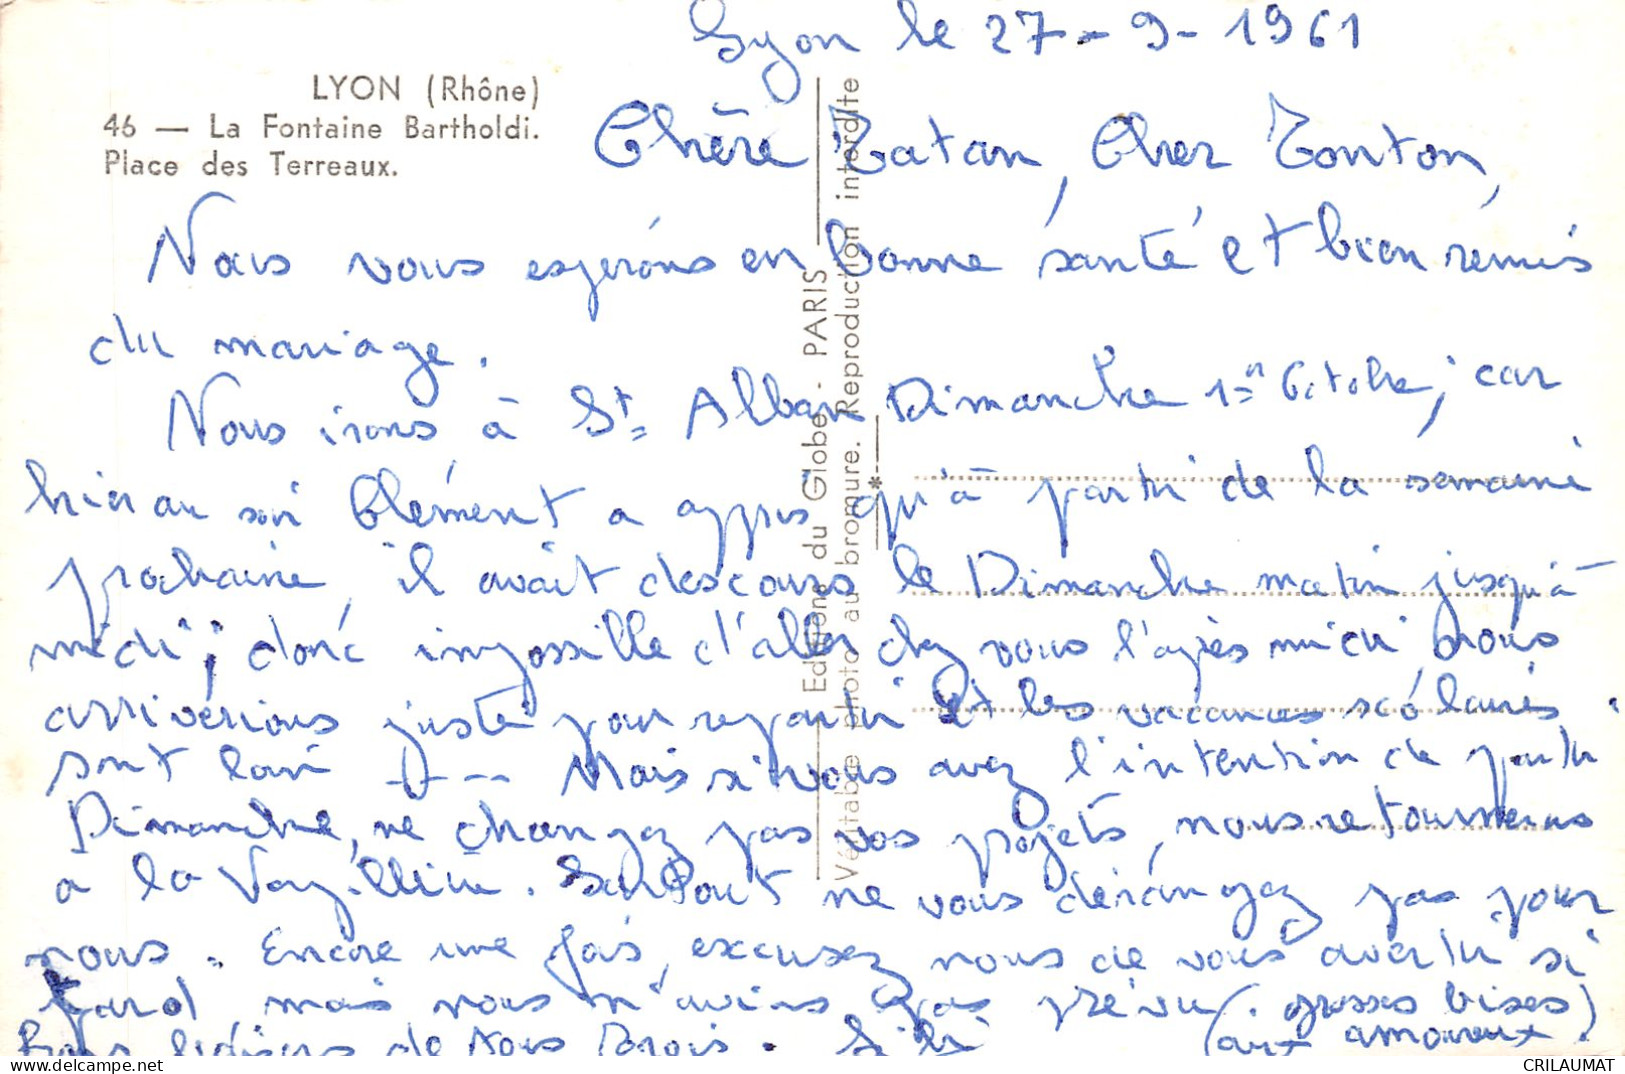 Lyon le 27-9-1961
LYON (Rhône)
46 — La Fontaine Bartholdi.
Place des Terreaux.
Chère Tatan, Cher Tonton,
Nous vous espérons en bonne santé et bien remis
du mariage.
Nous irons à St Alban Dimanche 1er Octobre, car
hier au soir Clément a appris qu'à partir de la semaine
prochaine, il avait des cours le Dimanche matin jusqu'à
midi ; donc impossible d'aller chez vous l'après midi, nous
arriverions juste pour repartir et les vacances scolaires
sont loin --- Mais si vous avez l'intention de partir
Dimanche, ne changez pas vos projets, nous retournerons
à la . Surtout ne vous dérangez pas pour
nous. Encore une fois, excusez nous de vous avertir si
tard, mais nous n'avions pas prévu. (grosses bises)
Bons baisers de nous trois. (aux amoureux.)
Editions du Globe - PARIS
Véritable photo au bromure. Reproduction interdite
*
delcampe.net
CRILAUMAT